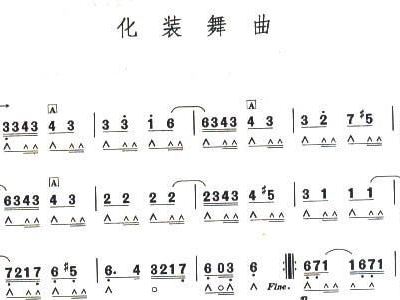 化装舞曲
A A
3343 4 3 | 3 3 1 6 | 6343 4 3 | 3 2 7 #5
A
6343 4 3 | 2 2 2 2 | 2343 4 #5 | 3 1 1 1
7217 6 #5 | 6. 4 3217 | 6 03 6 Fine. :‖: 671 1671